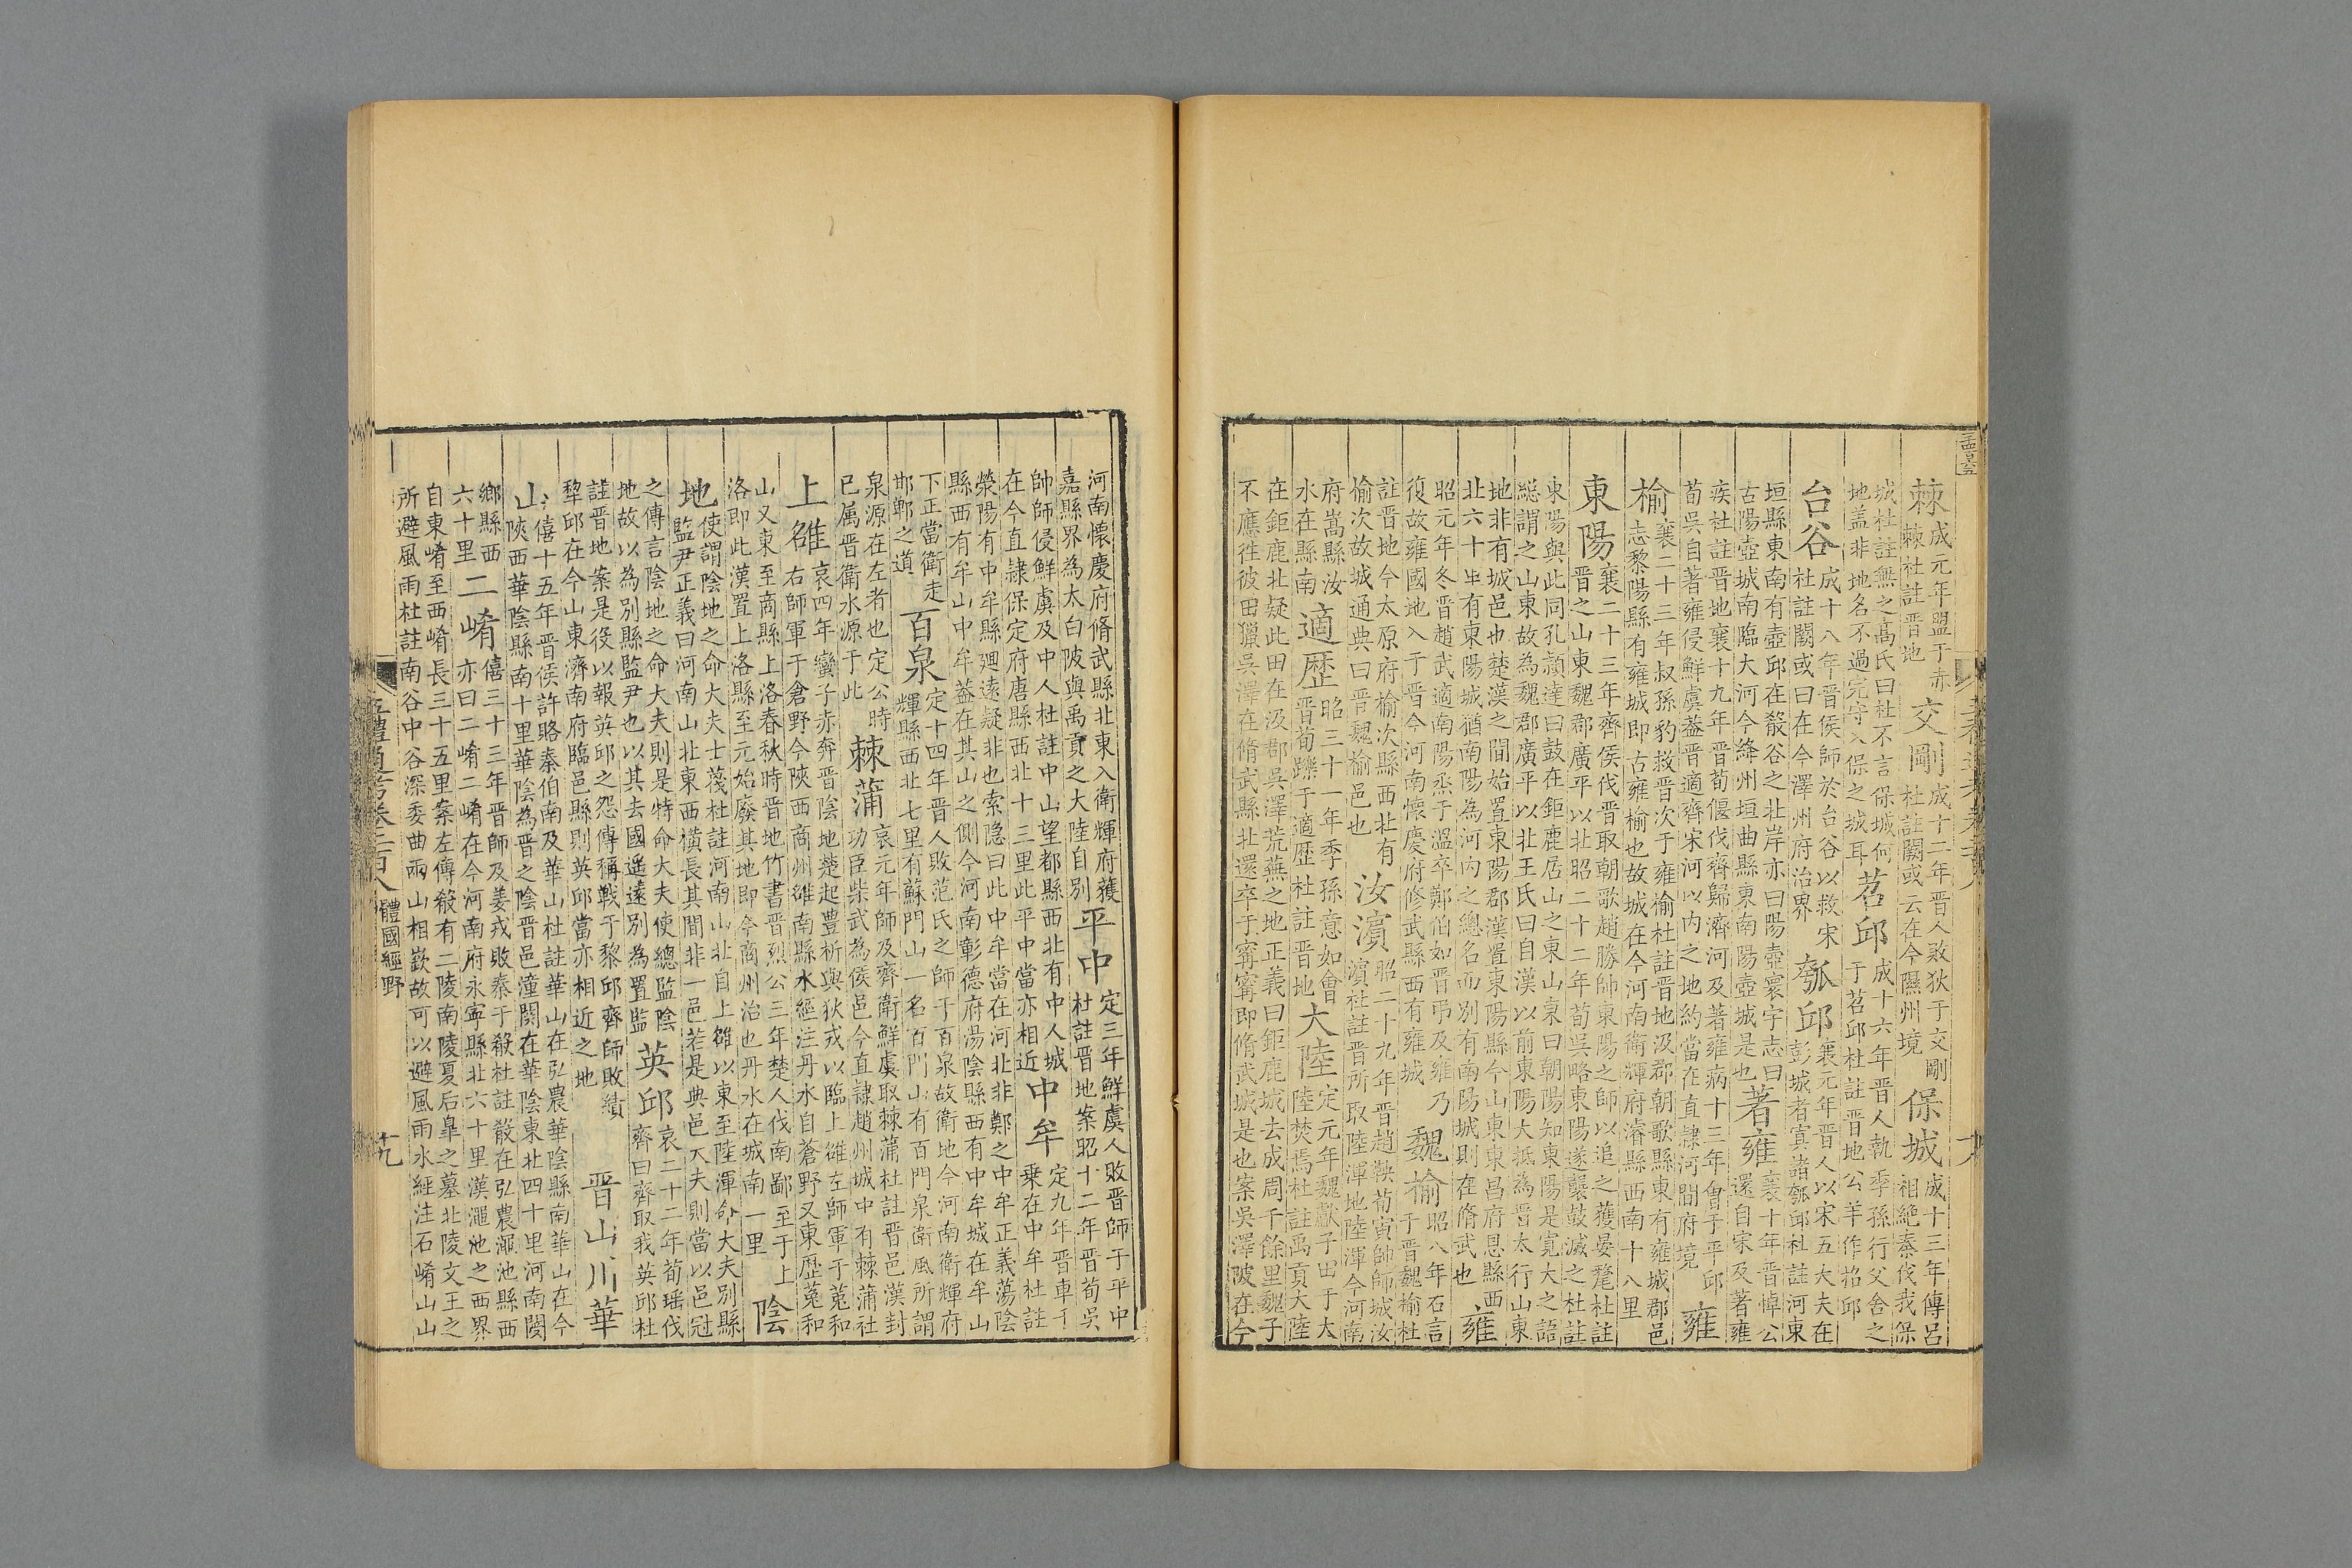 棘成元年盟于赤棘杜註晉地 交剛成十二年晉人敗狄于交剛杜註闕或云在今隰州境 保城成十三年傳呂相絶秦伐我保
城杜註無之高氏曰杜不言保城何地盖非地名不過完守入保之城耳 苕邱成十六年晉人執季孫行父舍之于苕邱杜註晉地公羊作招邱
台谷成十八年晉侯師於台谷以救宋杜註闕或曰在今澤州府治界 瓠邱襄元年晉人以宋五大夫在彭城者寘諸瓠邱杜註河東
垣縣東南有壺邱在殽谷之北岸亦曰陽壺寰宇志曰古陽壺城南臨大河今絳州垣曲縣東南陽壺城是也 著雍襄十年晉悼公還自宋及著雍
疾杜註晉地襄十九年晉荀偃伐齊歸濟河及著雍病十三年會于平邱荀吳自著雍侵鮮虞葢晉適齊宋河以内之地約當在直隷河間府境 雍
榆襄二十三年叔孫豹救晉次于雍榆杜註晉地汲郡朝歌縣東有雍城郡邑志黎陽縣有雍城即古雍榆也故城在今河南衛輝府濬縣西南十八里
東陽襄二十三年齊侯伐晉取朝歌趙勝帥東陽之師以追之獲晏氂杜註晉之山東魏郡廣平以北昭二十二年荀吳略東陽遂襲鼓滅之杜註
東陽與此同孔頴達曰鼓在鉅鹿居山之東山東曰朝陽知東陽是寛大之語緫謂之山東故為魏郡廣平以北王氏曰自漢以前東陽大抵為晉太行山東
地非有城邑也楚漢之間始置東陽郡漢置東陽縣今山東東昌府恩縣西北六十里有東陽城猶南陽為河内之總名而别有南陽城則在脩武也 雍
昭元年冬晉趙武適南陽烝于溫卒鄭伯如晉弔及雍乃復故雍國地入于晉今河南懷慶府修武縣西有雍城 魏榆昭八年石言于晉魏榆杜
註晉地今太原府榆次縣西北有榆次故城通典曰晉魏榆邑也 汝濱昭二十九年晉趙鞅荀寅帥師城汝濱杜註晉所取陸渾地陸渾今河南
府嵩縣汝水在縣南 適歷昭三十一年季孫意如會晉荀躒于適歷杜註晉地 大陸定元年魏獻子田于大陸焚焉杜註禹貢大陸
在鉅鹿北疑此田在汲郡吳澤荒蕪之地正義曰鉅鹿城去成周千餘里魏子不應徃彼田獵吳澤在脩武縣北還卒于寗寗即脩武城是也案吳澤陂在今
河南懷慶府脩武縣北東入衛輝府獲嘉縣界為太白陂與禹貢之大陸自别 平中定三年鮮虞人敗晉師于平中杜註晉地案昭十二年晉荀吳
帥師侵鮮虞及中人杜註中山望都縣西北有中人城在今直隷保定府唐縣西北十三里此平中當亦相近 中牟定九年晉車千乗在中牟杜註
滎陽有中牟縣廻遠疑非也索隐曰此中牟當在河北非鄭之中牟正義蕩陰縣西有牟山中牟葢在其山之側今河南彰德府湯陰縣西有中牟城在牟山
下正當衛走邯鄲之道 百泉定十四年晉人敗范氏之師于百泉故衛地今河南衛輝府輝縣西北七里有蘇門山一名百門山有百門泉衛風所謂
泉源在左者也定公時已属晉衛水源于此 棘蒲哀元年師及齊衛鮮虞取棘蒲杜註晉邑漢封功臣柴武為侯邑今直隷趙州城中有棘蒲社
上雒哀四年蠻子赤奔晉陰地楚起豐析與狄戎以臨上雒左師軍于菟和右師軍于倉野今陜西商州雒南縣水經注丹水自蒼野又東歷菟和
山又東至商縣上洛春秋時晉地竹書晉烈公三年楚人伐南鄙至于上洛即此漢置上洛縣至元始廢其地即今商州治也丹水在城南一里 陰
地使謂陰地之命大夫士蔑杜註河南山北自上雒以東至陸渾命大夫別縣監尹正義曰河南山北東西橫長其間非一邑若是典邑大夫則當以邑冠
之傳言陰地之命大夫則是特命大夫使總監陰地故以為別縣監尹也以其去國遙遠别為置監 英邱哀二十二年荀瑶伐齊曰齊取我英邱杜
註晉地案是役以報英邱之怨傳稱戰于黎邱齊師敗績犂邱在今山東濟南府臨邑縣則英邱當亦相近之地 晉山川 華
山僖十五年晉侯許賂秦伯南及華山杜註華山在弘農華陰縣南華山在今陜西華陰縣南十里華陰為晉之陰晉邑潼關在華陰東北四十里河南閿
鄉縣西六十里 二崤僖三十三年晉師及姜戎敗秦于殽杜註殽在弘農澠池縣西亦曰二崤二崤在今河南府永寧縣北六十里漢澠池之西界
自東崤至西崤長三十五里案左傳殽有二陵南陵夏后皐之墓北陵文王之所避風雨杜註南谷中谷深委曲兩山相嶔故可以避風雨水經注石崤山山
五禮通考卷二百八 體國經野 十九